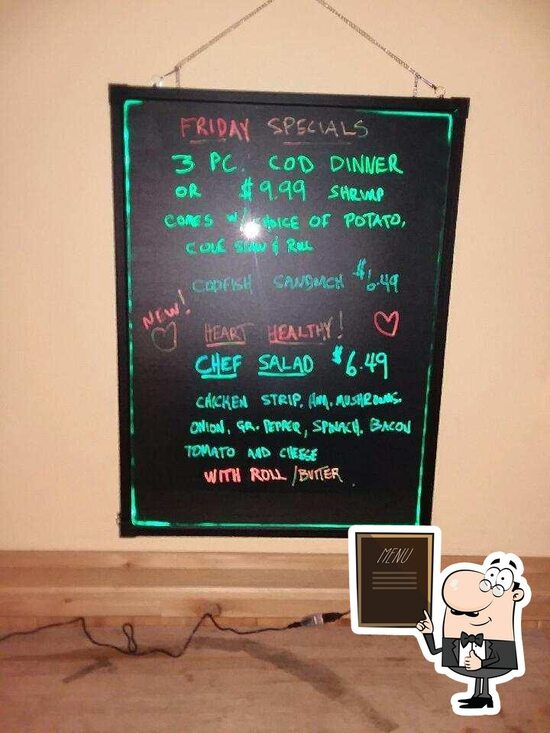 FRIDAY SPECIALS
3 PC. COD DINNER
OR $9.99 SHRIMP
COMES W/ CHOICE OF POTATO,
COLE SLAW & ROLL
CODFISH SANDWICH $6.49
NEW!
HEART HEALTHY!
CHEF SALAD $6.49
CHICKEN STRIP, HAM, MUSHROOMS,
ONION, GR. PEPPER, SPINACH, BACON
TOMATO AND CHEESE
WITH ROLL / BUTTER
MENU